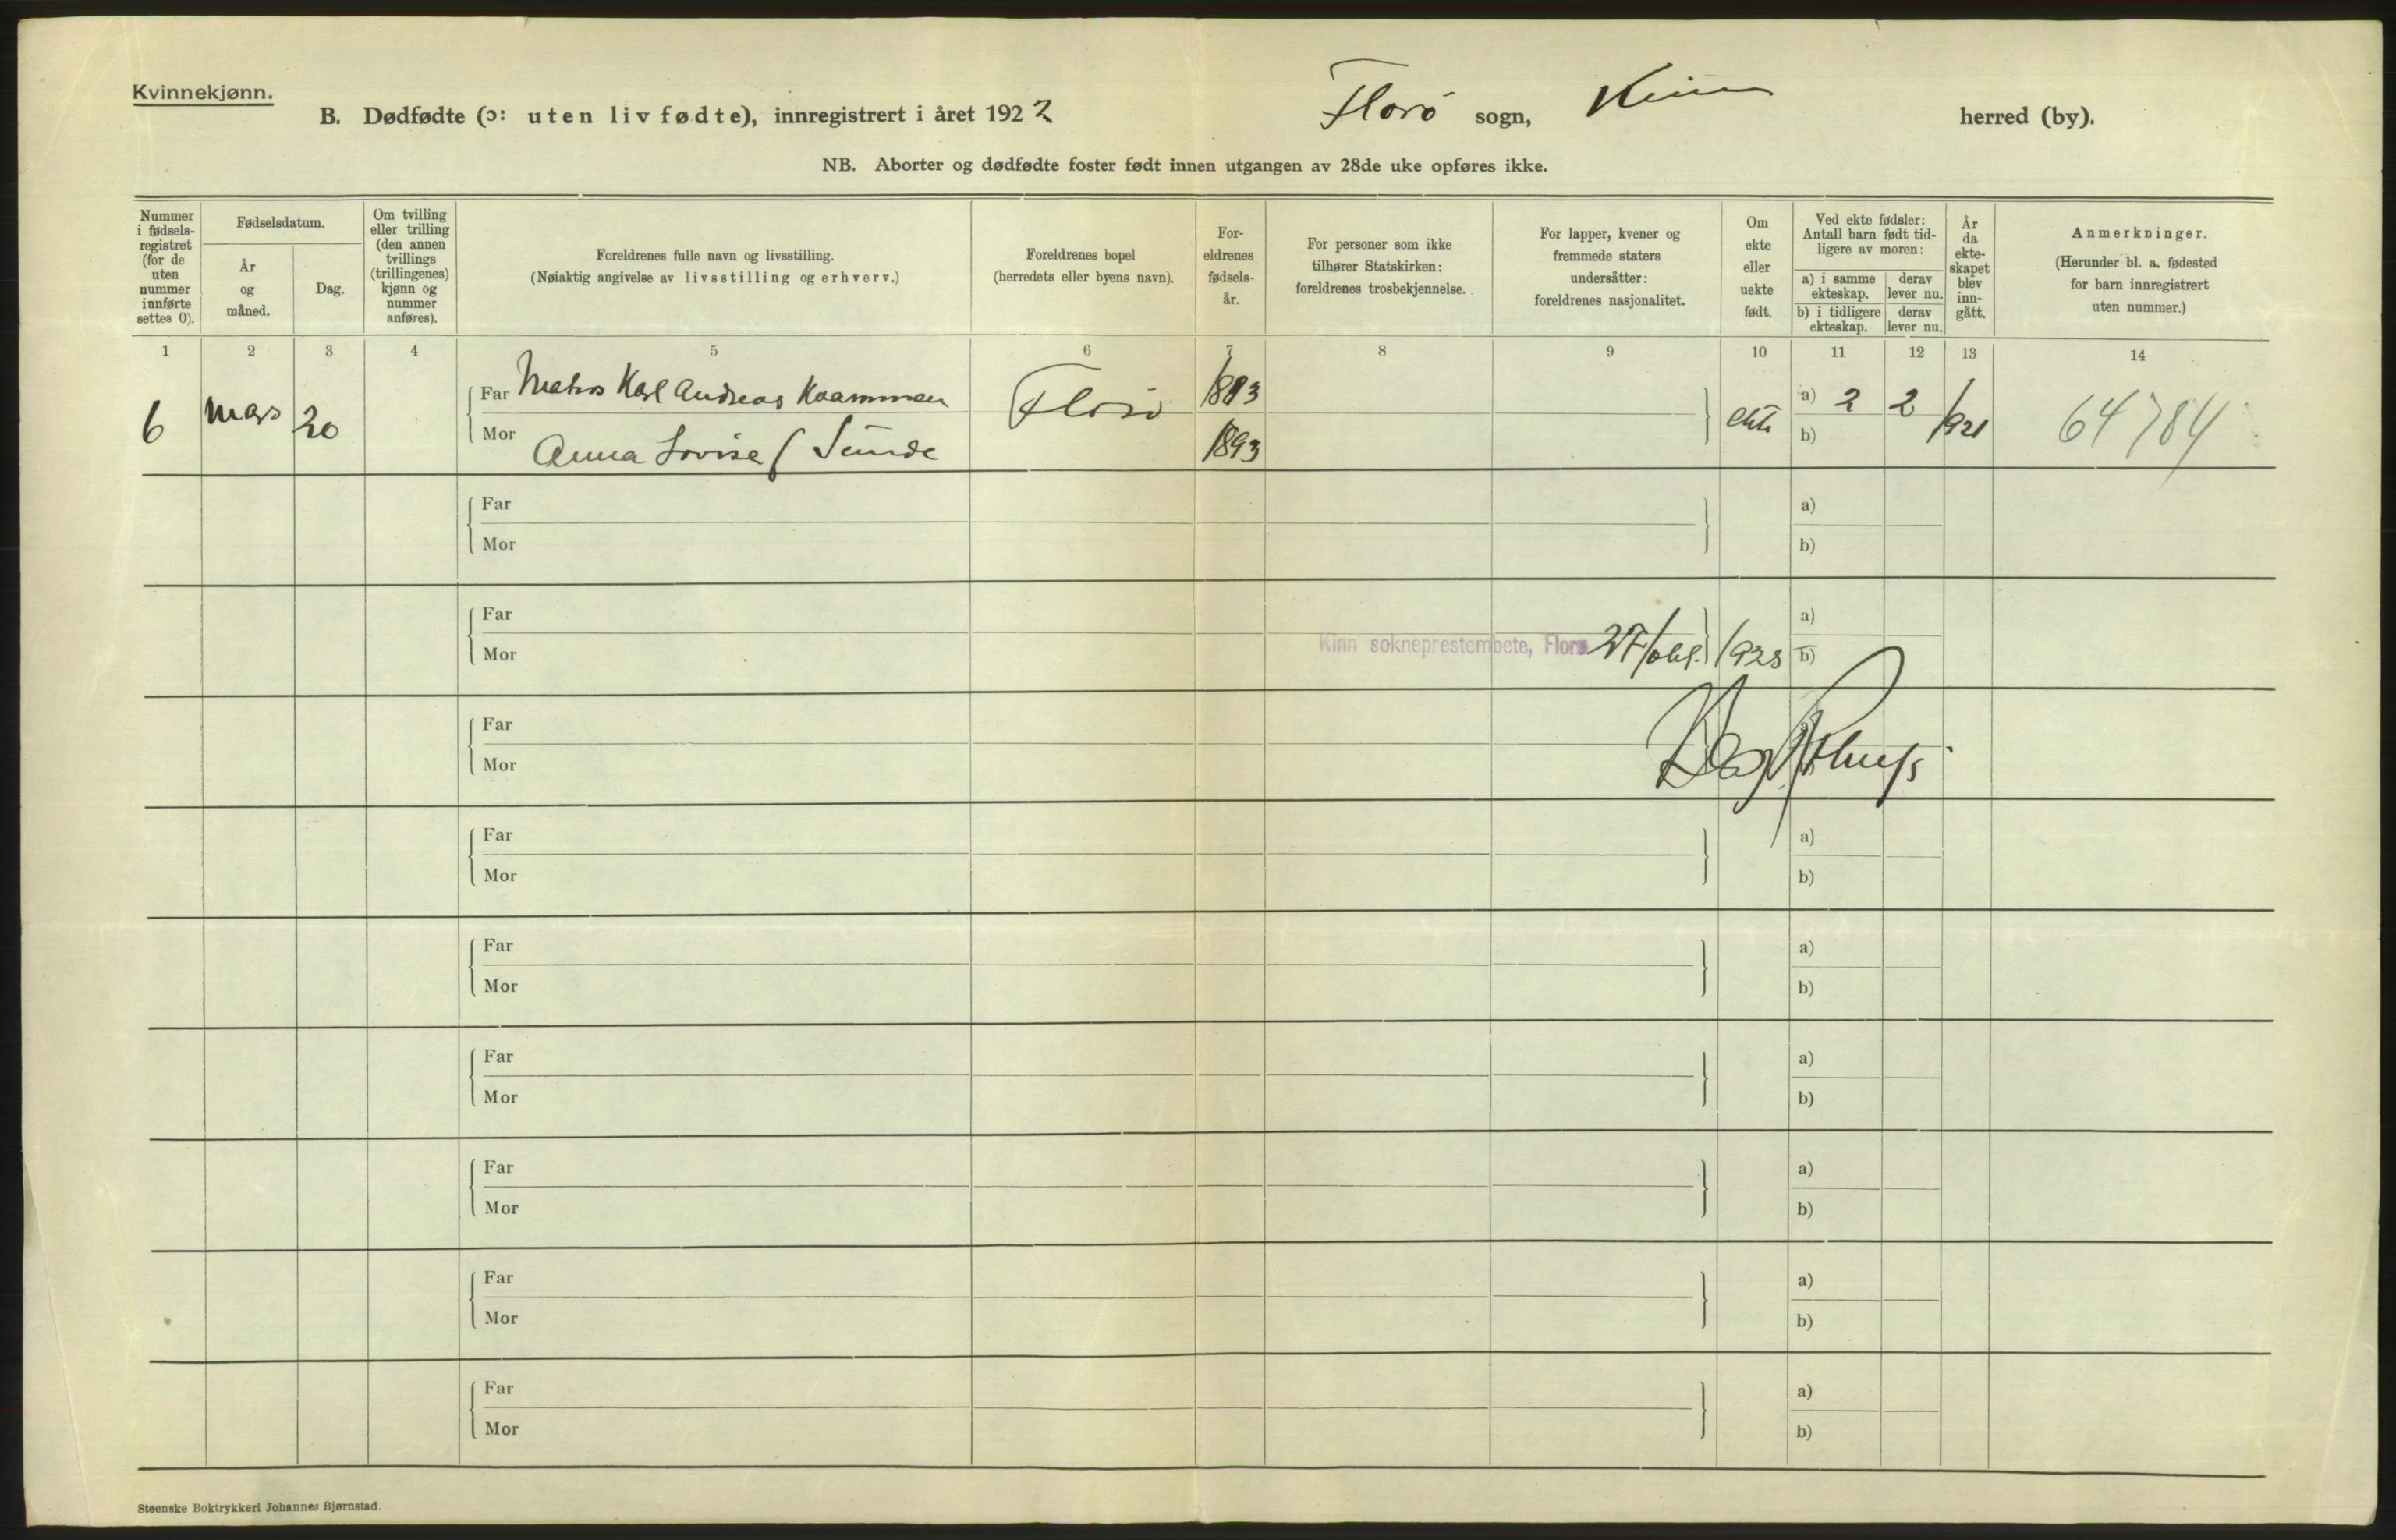 Kvinnekjønn.
B. Dødfødte (ɔ: uten liv fødte), innregistrert i året 1922 Florø sogn, Kinn herred (by).
NB. Aborter og dødfødte foster født innen utgangen av 28de uke opføres ikke.
Nummer i fødsels-registret (for de uten nummer innførte settes 0).
Fødselsdatum.
År og måned.
Dag.
Om tvilling eller trilling (den annen tvillings (trillingenes) kjønn og nummer anføres).
Foreldrenes fulle navn og livsstilling.
(Nøiaktig angivelse av livsstilling og erhverv.)
Foreldrenes bopel
(herredets eller byens navn).
For-eldrenes fødsels-år.
For personer som ikke tilhører Statskirken: foreldrenes trosbekjennelse.
For lapper, kvener og fremmede staters undersåtter: foreldrenes nasjonalitet.
Om ekte eller uekte født.
Ved ekte fødsler: Antall barn født tid-ligere av moren:
a) i samme ekteskap.
derav lever nu.
b) i tidligere ekteskap.
derav lever nu.
År da ekte-skapet blev inn-gått.
Anmerkninger.
(Herunder bl. a. fødested for barn innregistrert uten nummer.)
1 2 3 4 5 6 7 8 9 10 11 12 13 14
6 mars 20 Far Karl Andreas Florø 1883 ekte a) 2 2 1921 64784
Mor Anna Lovise f Sunde 1893 b)
Far a)
Mor b)
Far a)
Mor Kinn sokneprestembete, Florø 27/okt. 1923 b)
Far a)
Mor
Far a)
Mor b)
Far a)
Mor b)
Far a)
Mor b)
Far a)
Mor b)
Far a)
Mor b)
Far a)
Mor b)
Steenske Boktrykkeri Johannes Bjørnstad.